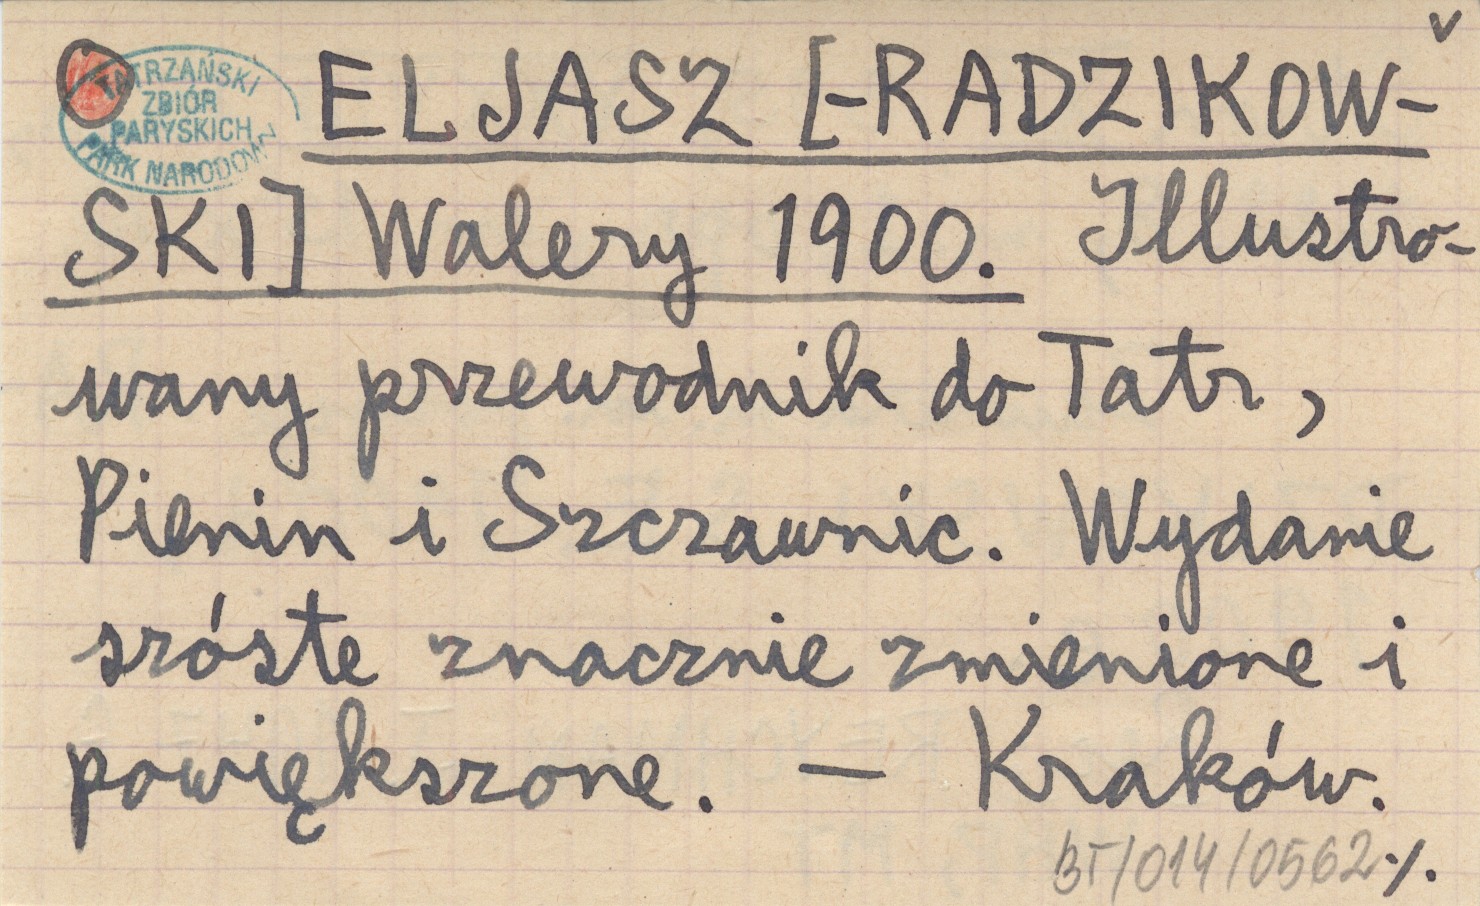 v
TATRZAŃSKI
ZBIÓR
PARYSKICH
PARK NARODOWY
ELJASZ [-RADZIKOW-
SKI] Walery 1900. Illustro-
wany przewodnik do Tatr,
Pienin i Szczawnic. Wydanie
szóste znacznie zmienione i
powiększone. — Kraków.
BT/014/0562 ·/.